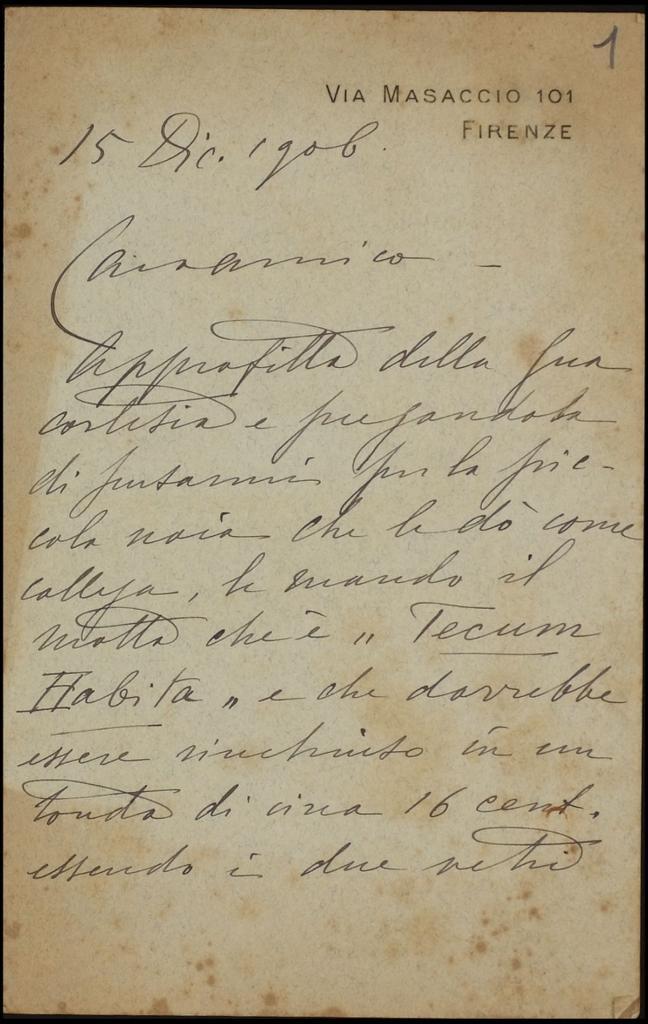 1
VIA MASACCIO 101
FIRENZE
15 Dic. 1906.
Caro amico –
Approfitto della sua
cortesia e pregandola
di scusarmi per la pic-
cola noia che le dò come
collega, le mando il
motto che è „ Tecum
Habita „ e che dovrebbe
essere rinchiuso in un
tondo di circa 16 cent.
essendo i due vetri